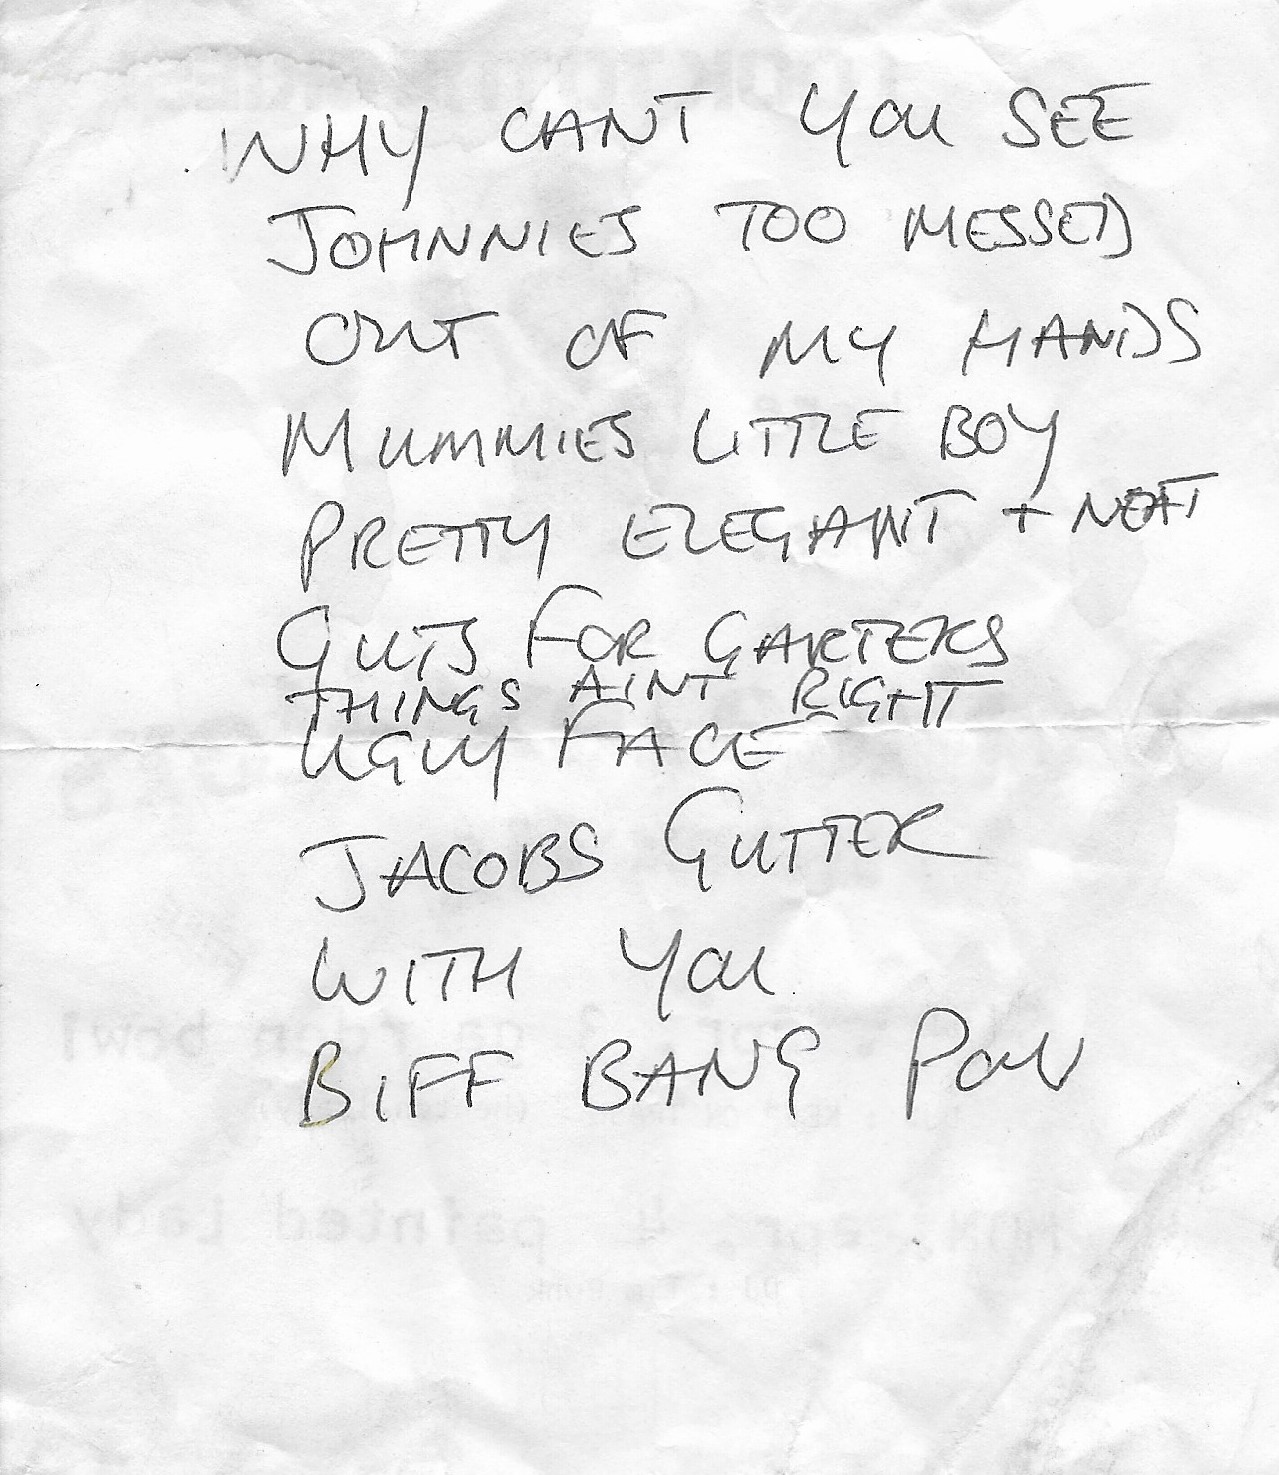 WHY CANT YOU SEE
JOHNNIES TOO MESSED
OUT OF MY HANDS
MUMMIES LITTLE BOY
PRETTY ELEGANT + NEAT
GUTS FOR GARTERS
THINGS AINT RIGHT
UGLY FACE
JACOBS GUTTER
WITH YOU
BIFF BANG POW
painted Lady